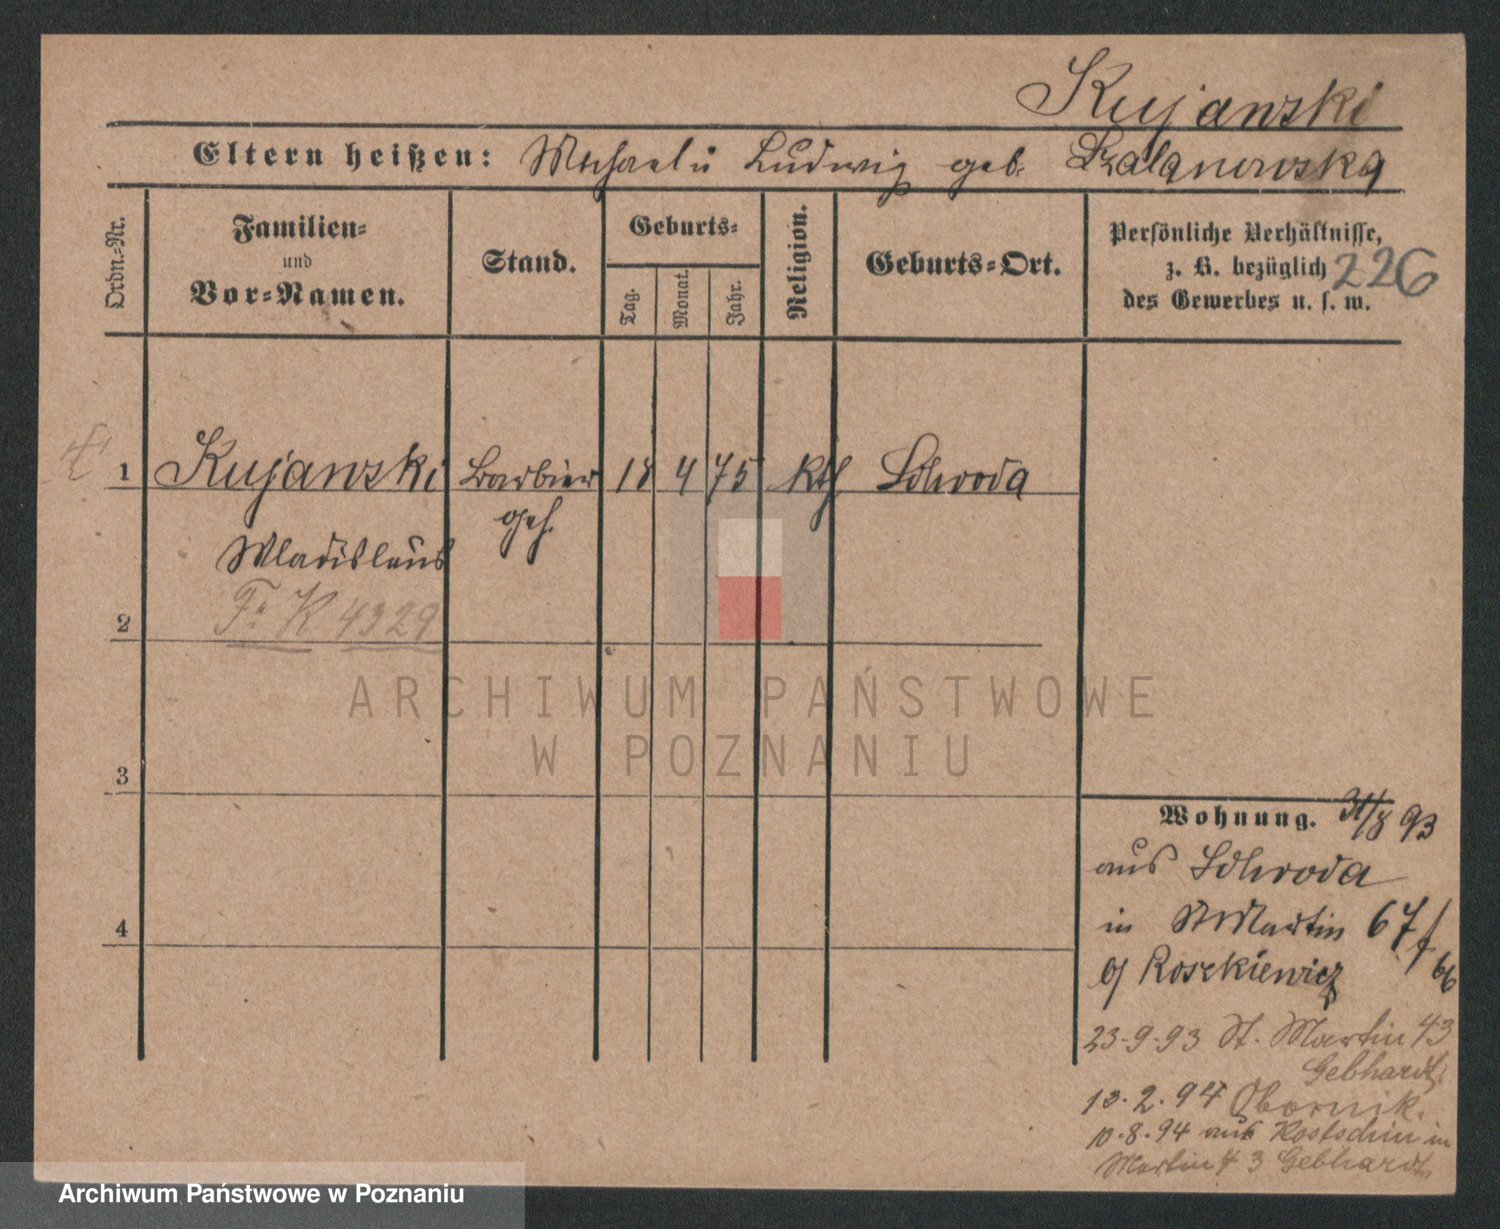 Kujawski
Eltern heißen: Michael u Ludwig geb.
Ordn.-Nr.
Familien-
und
Vor-Namen.
Stand.
Geburts-
Tag.
Monat.
Jahr.
Religion.
Geburts-Ort.
Persönliche Verhältnisse,
z. B. bezüglich
des Gewerbes u. s. w.
226
1 Kujawski Barbier 18 4 75 kth Schroda
geh.
Wladislaus
Fr K 4329
2
3
4
ARCHIWUM PAŃSTWOWE
W POZNANIU
Wohnung. 31/8 93
aus Schroda
in St Martin 67
b/ Roszkiewicz 66
23-9-93 St. Martin 43
Gebhardt
13.2.94 Obornik.
10.8.94 aus in
Martin 43 Gebhardt
Archiwum Państwowe w Poznaniu